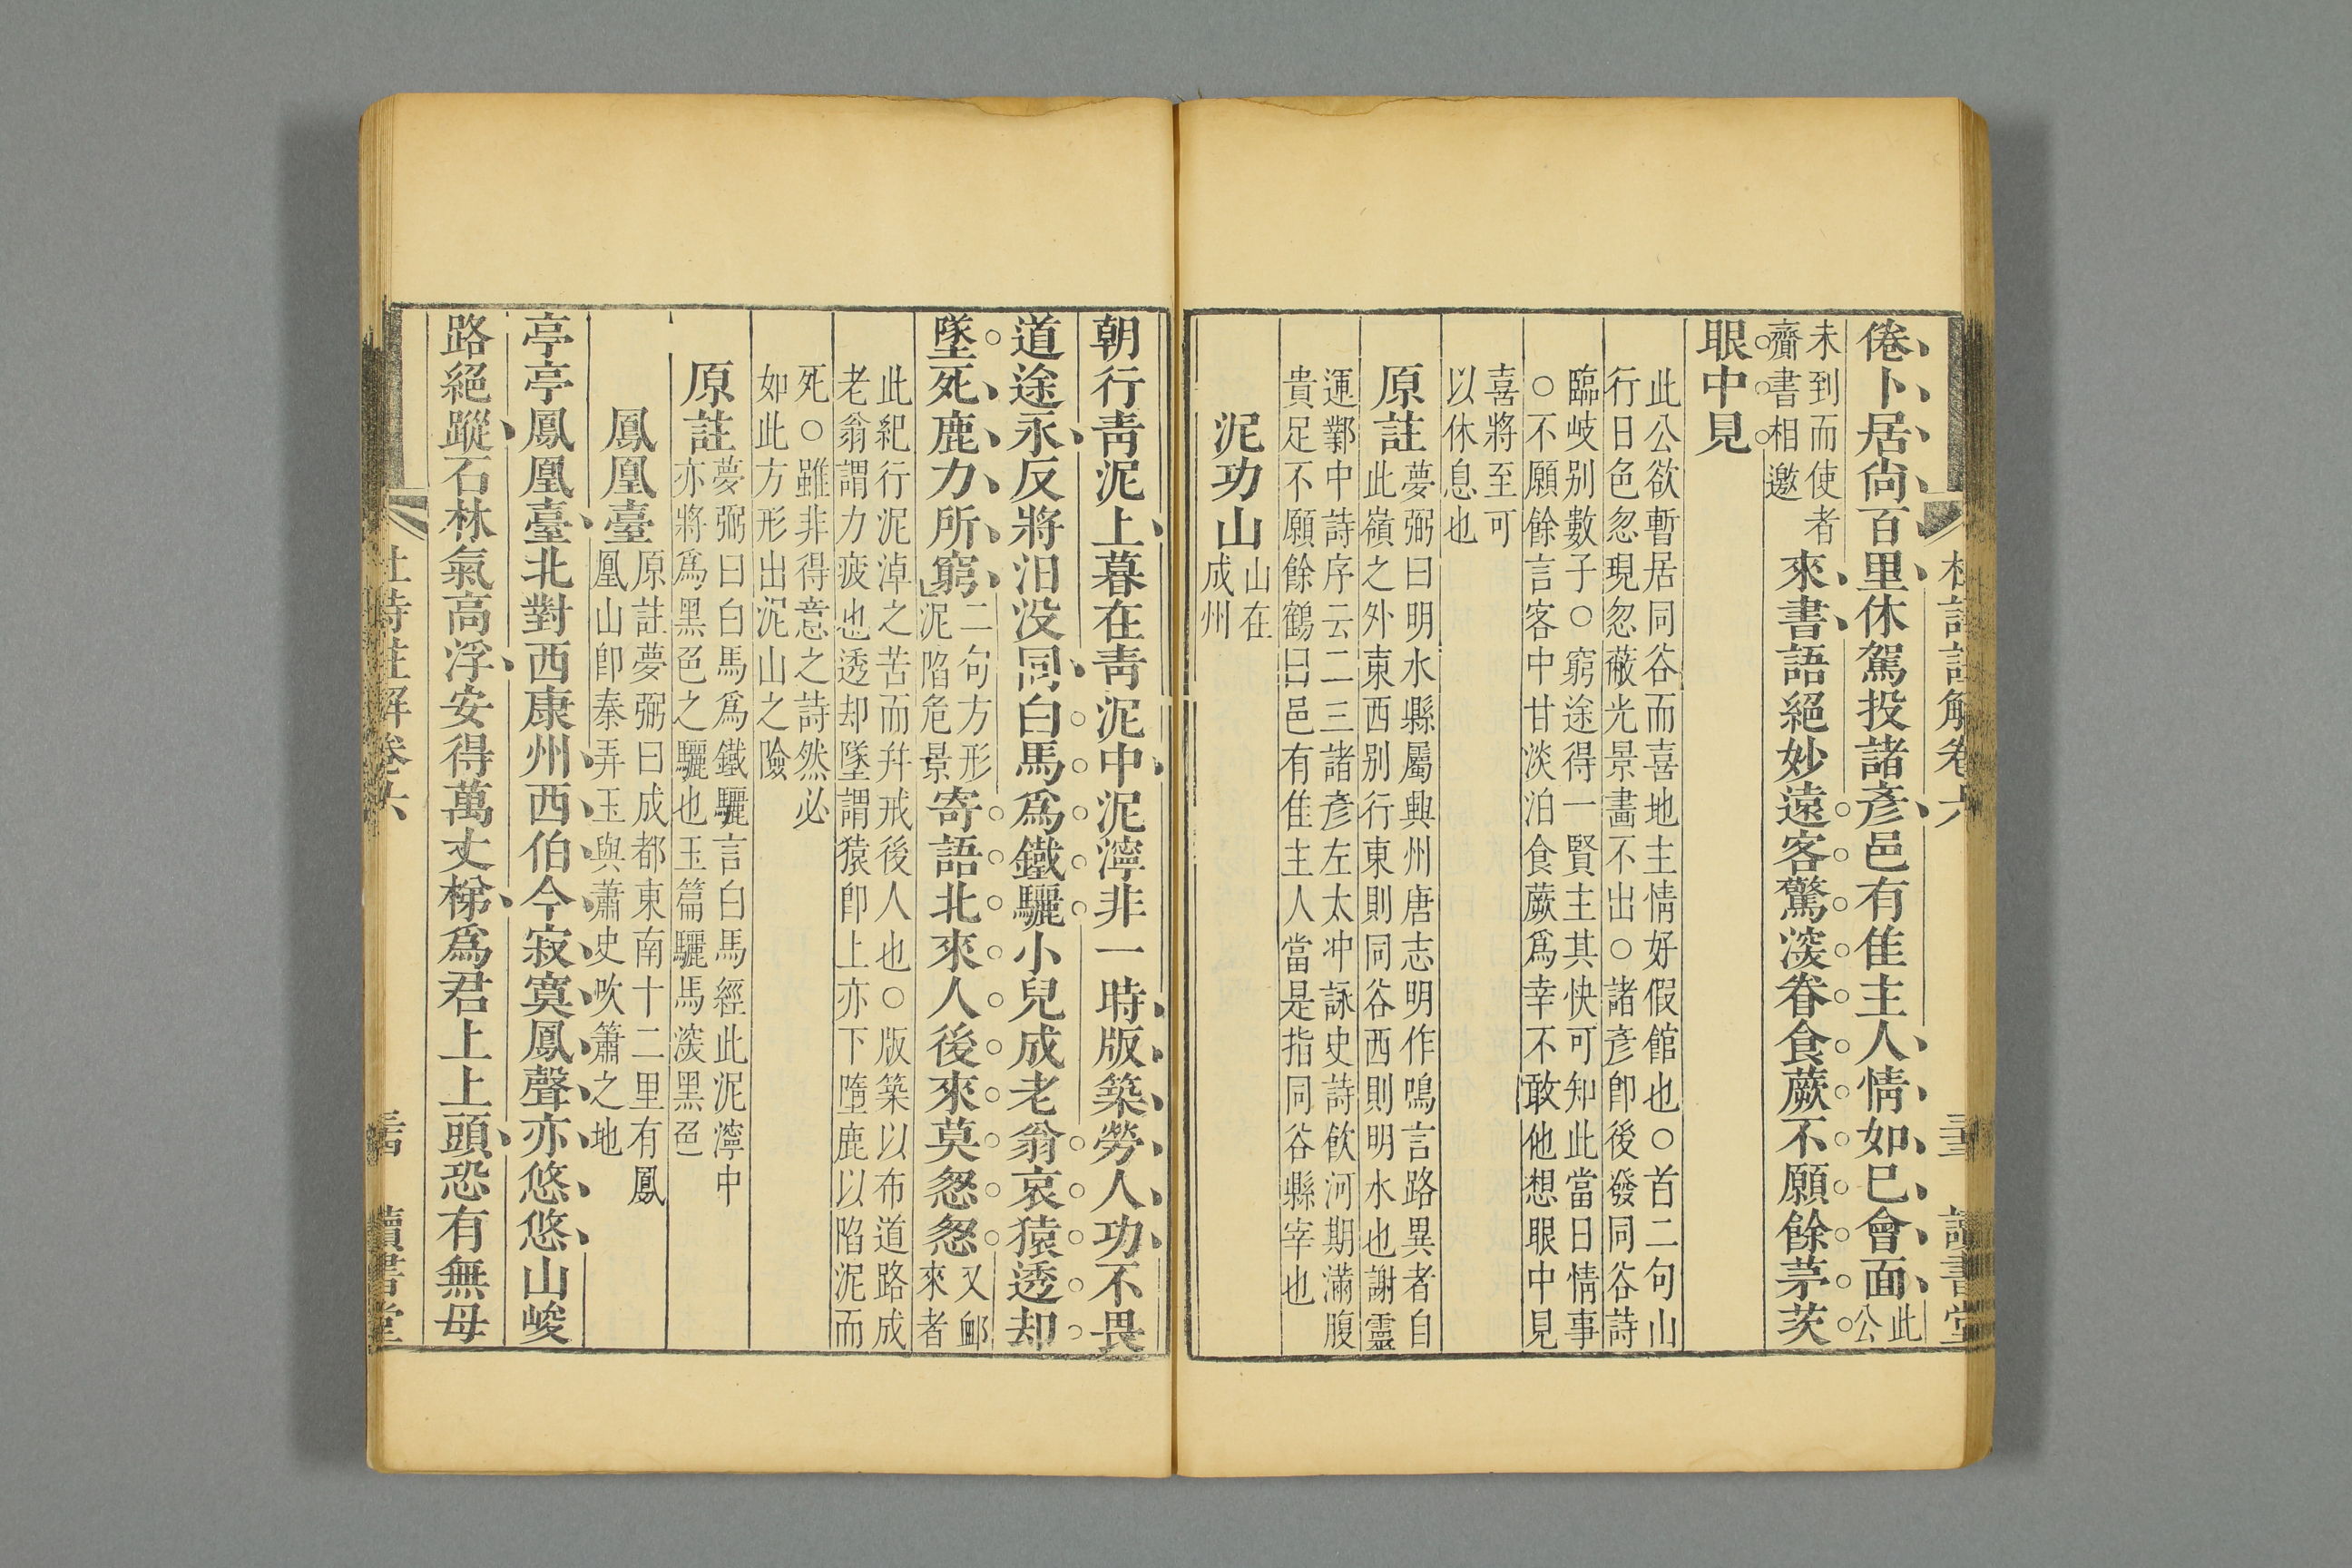 倦卜居尙百里休駕投諸彥邑有佳主人情如已會面此公
未到而使者齎書相邀來書語絕妙遠客驚深眷食蕨不願餘茅茨
眼中見
此公欲暫居同谷而喜地主情好假館也○首二句山
行日色忽現忽蔽光景畵不出○諸彥卽後發同谷詩
臨岐别數子○窮途得一賢主其快可知此當日情事
○不願餘言客中甘淡泊食蕨爲幸不敢他想眼中見
喜將至可
以休息也
原註夢弼曰明水縣屬興州唐志明作鳴言路異者自
此嶺之外東西别行東則同谷西則明水也謝靈
運鄴中詩序云二三諸彥左太冲詠史詩飮河期滿腹
貴足不願餘鶴曰邑有佳主人當是指同谷縣宰也
泥功山山在成州
朝行靑泥上暮在靑泥中泥濘非一時版築勞人功不畏
道途永反將汨没同白馬爲鐵驪小兒成老翁哀猿透却
墜死鹿力所窮二句方形泥陷危景寄語北來人後來莫怱怱又䘏來者
此紀行泥淖之苦而幷戒後人也○版築以布道路成
老翁謂力疲也透却墜謂猿卽上亦下墮鹿以陷泥而
死○雖非得意之詩然必
如此方形出泥山之險
原註夢弼曰白馬爲鐵驪言白馬經此泥濘中
亦將爲黑色之驪也玉篇驪馬深黑色
鳳凰臺原註夢弼曰成都東南十二里有鳳
凰山卽秦弄玉與蕭史吹簫之地
亭亭鳳凰臺北對西康州西伯今寂寞鳳聲亦悠悠山峻
路絕蹤石林氣高浮安得萬丈梯爲君上上頭恐有無母
杜詩註解卷六
讀書堂